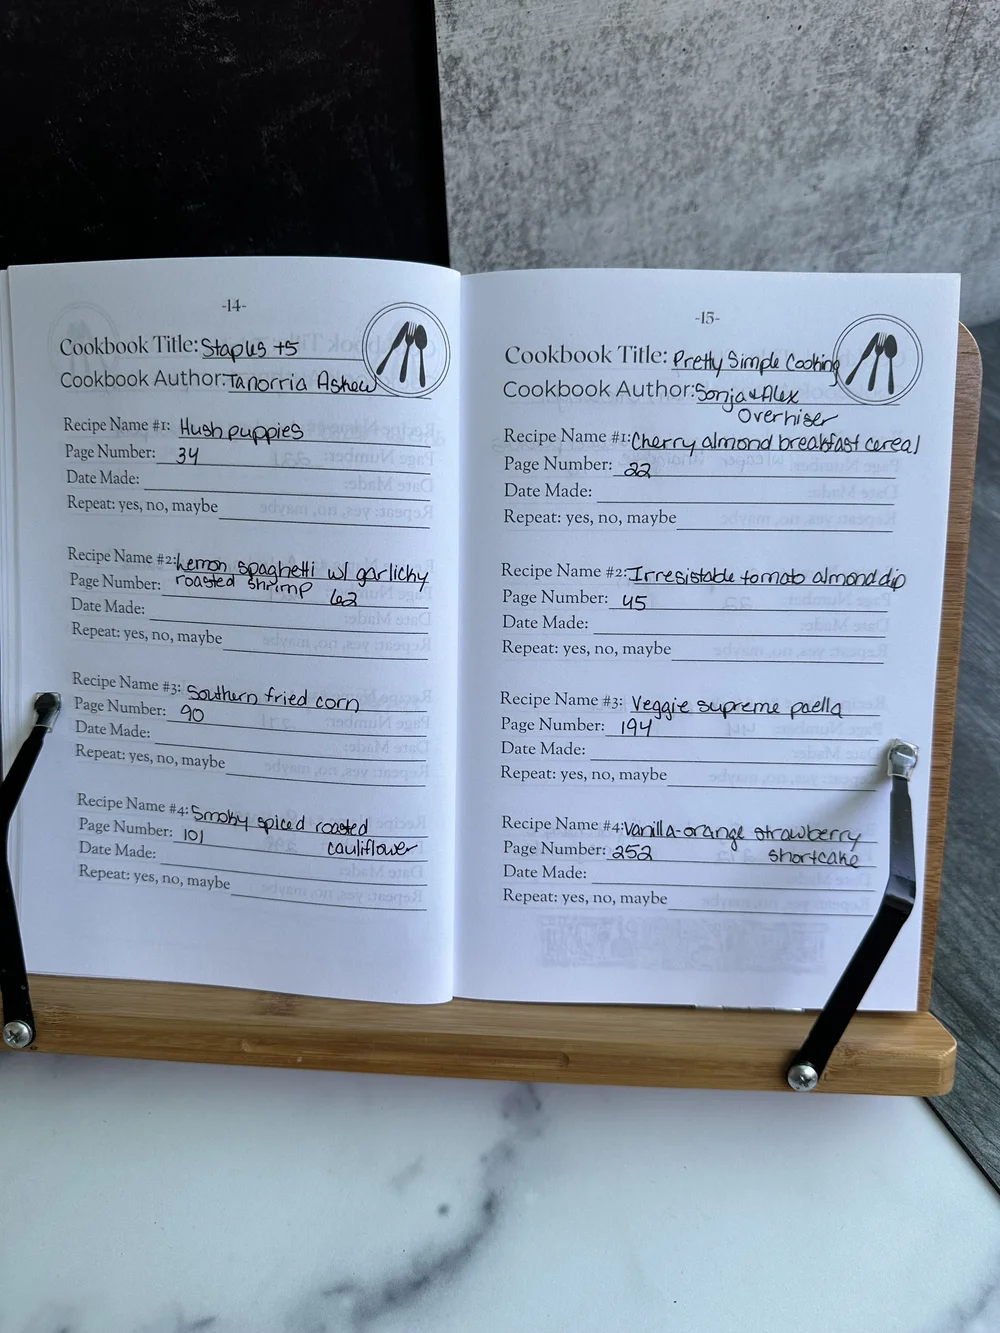 -14-
Cookbook Title: Staples +5
Cookbook Author: Tanorria Askew
Recipe Name #1: Hush puppies
Page Number: 34
Date Made:
Repeat: yes, no, maybe
Recipe Name #2: Lemon spaghetti w/ garlicky
roasted shrimp
Page Number: 62
Date Made:
Repeat: yes, no, maybe
Recipe Name #3: Southern fried corn
Page Number: 90
Date Made:
Repeat: yes, no, maybe
Recipe Name #4: Smoky spiced roasted
cauliflower
Page Number: 101
Date Made:
Repeat: yes, no, maybe
-15-
Cookbook Title: Pretty Simple Cooking
Cookbook Author: Sonja & Alex
Overhiser
Recipe Name #1: Cherry almond breakfast cereal
Page Number: 22
Date Made:
Repeat: yes, no, maybe
Recipe Name #2: Irresistable tomato almond dip
Page Number: 45
Date Made:
Repeat: yes, no, maybe
Recipe Name #3: Veggie supreme paella
Page Number: 194
Date Made:
Repeat: yes, no, maybe
Recipe Name #4: Vanilla-orange strawberry
shortcake
Page Number: 252
Date Made:
Repeat: yes, no, maybe